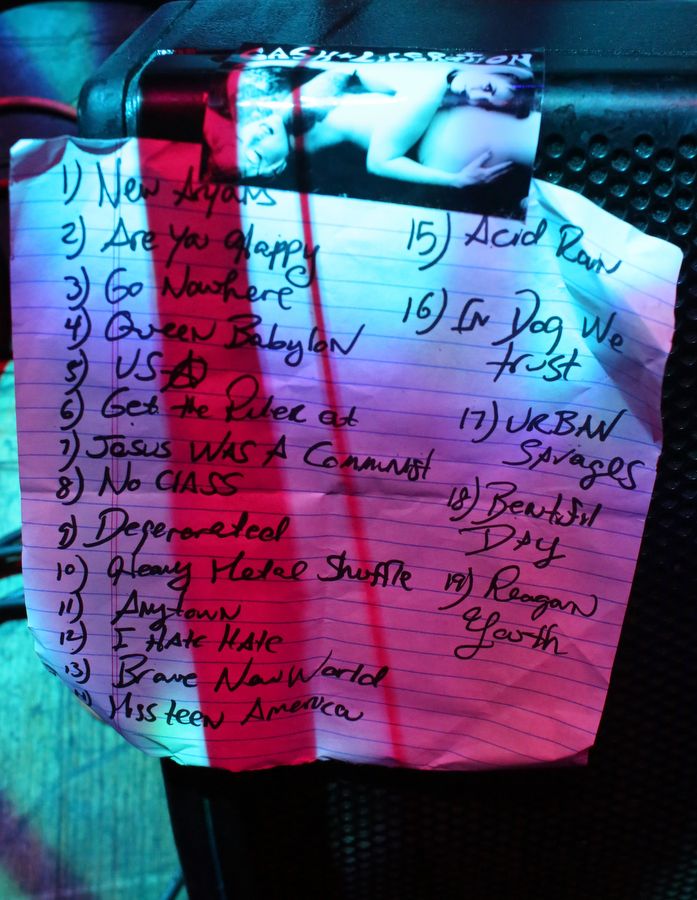 CASH LIBERATION
1) New Aryans
2) Are You Happy
3) Go Nowhere
4) Queen Babylon
5) USA
6) Get the Ruler out
7) Jesus WAS A Communist
8) No CLASS
9) Degenerated
10) Heavy Metal Shuffle
11) Anytown
12) I HATE HATE
13) Brave New World
14) Miss teen America
15) Acid Rain
16) In Dog We
trust
17) URBAN
SAVAGES
18) Beautiful
DAY
19) Reagan
Youth